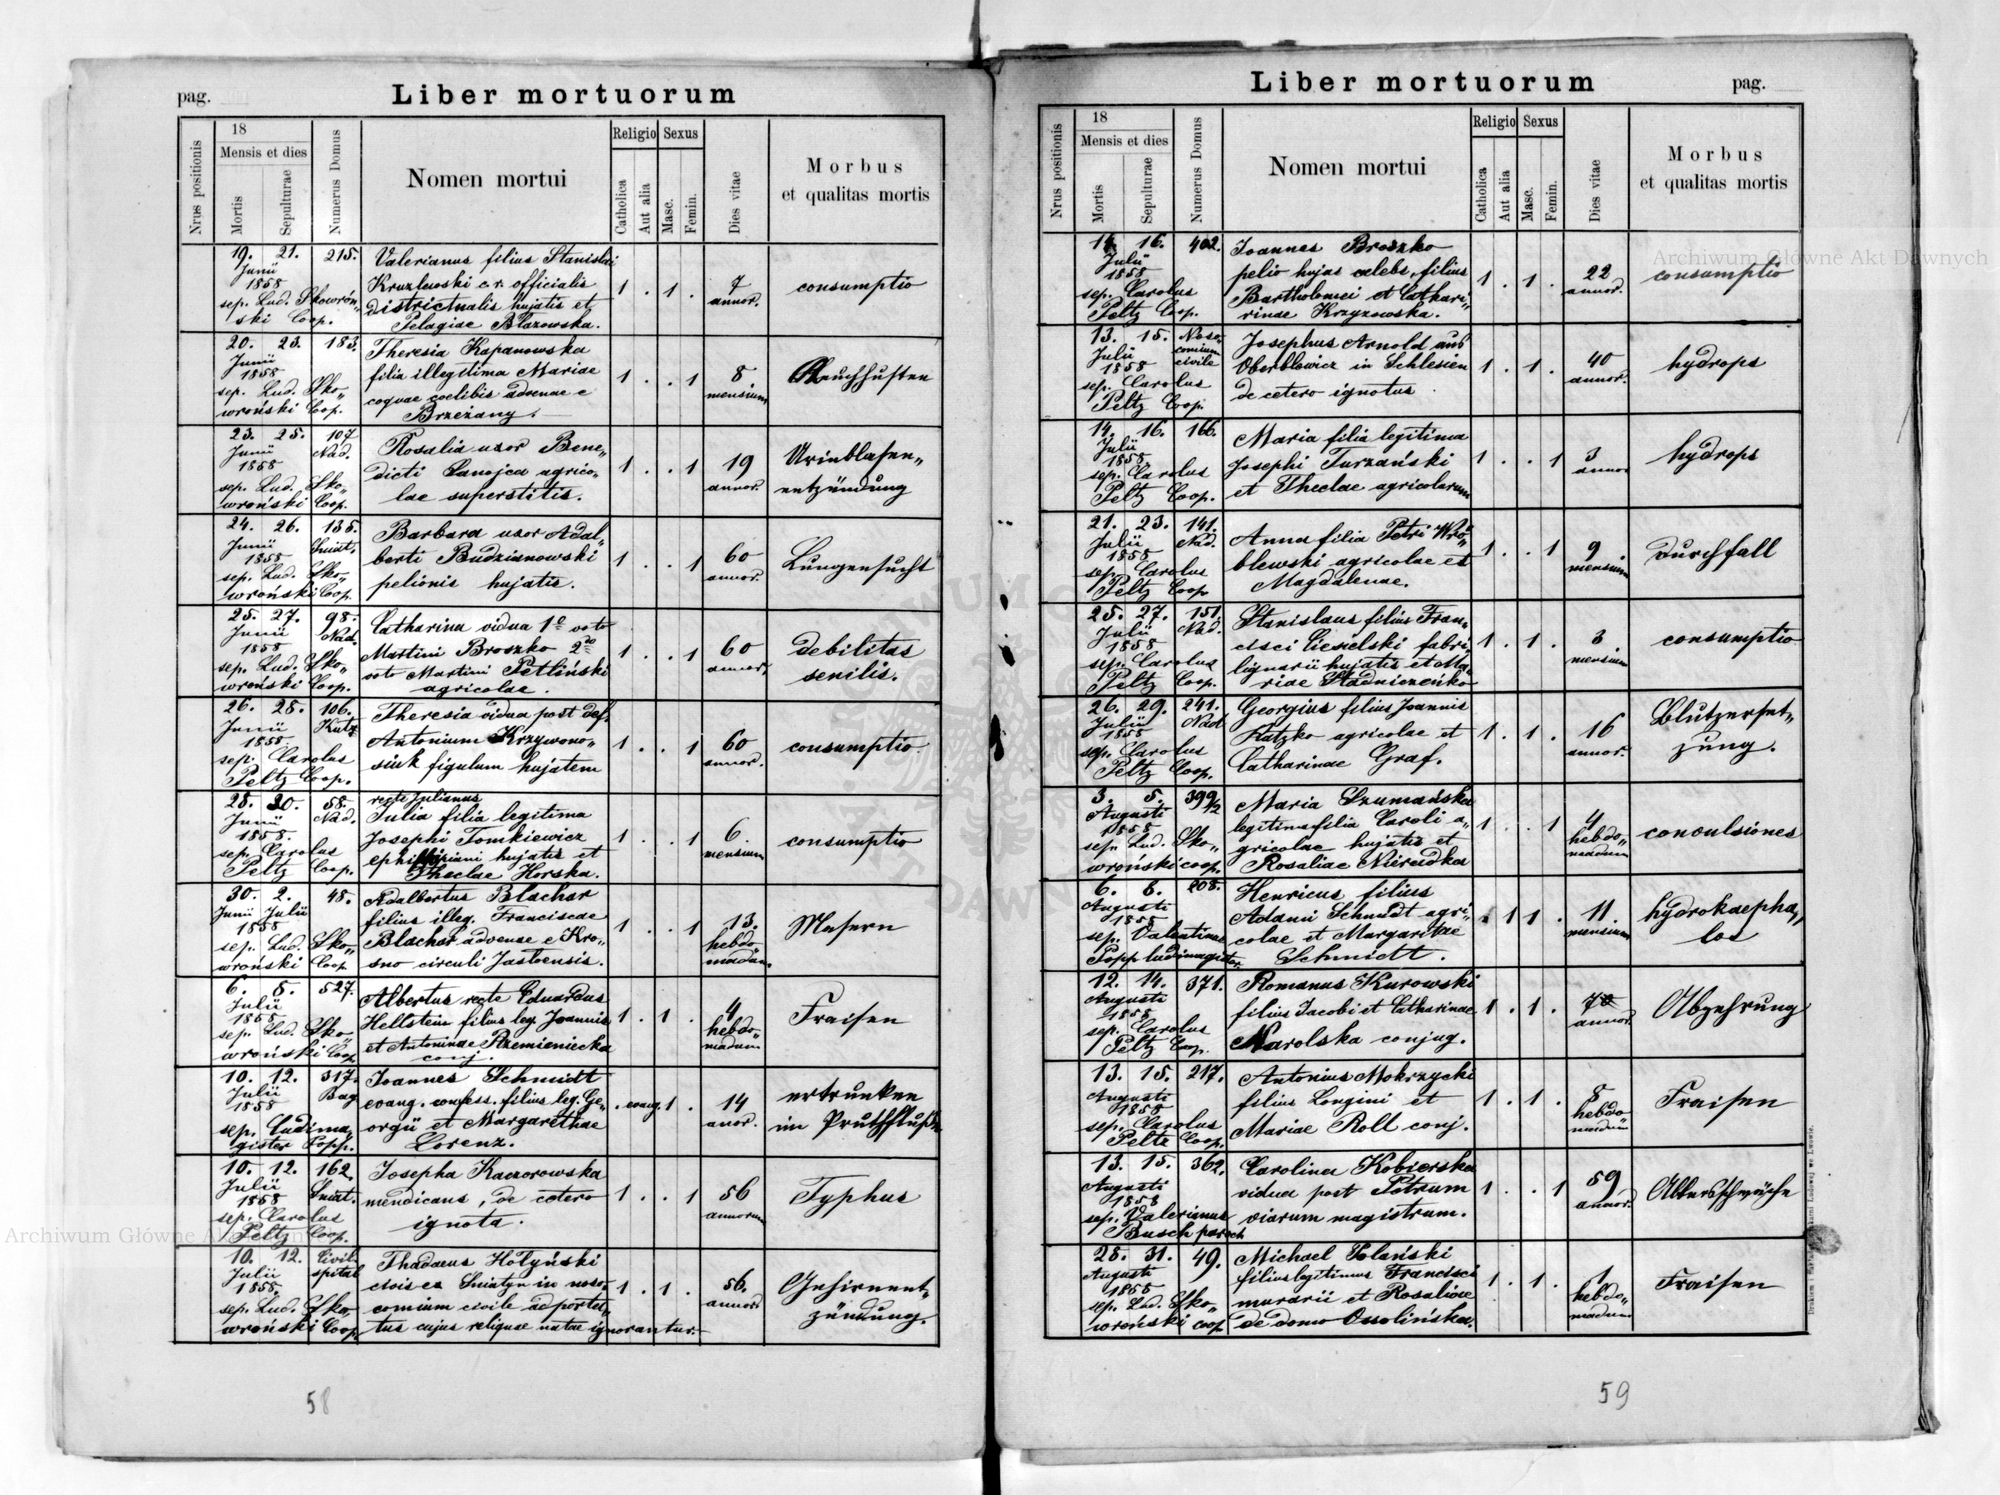 pag.
Liber mortuorum
Nrus positionis
18
Mensis et dies
Mortis
Sepulturae
Numerus Domus
Nomen mortui
Religio
Catholica
Aut alia
Sexus
Masc.
Femin.
Dies vitae
Morbus
et qualitas mortis
19. 21. 215.
Junii
1858
sep. Lud. Skowroń„
ski Coop.
Valerianus filius Stanislai
Kruzlewski c.r. officialis
districtualis hujatis et
Pelagiae Blazowska.
1 . 1 .
7
annor.
consumptio
20. 23. 183.
Junii
1858
sep. Lud. Sko„
wroński Coop.
Theresia Kapanowska
filia illegitima Mariae
coquae coelibis advenae e
Brzeżany.
1 . . 1
8
mensium
Keuchhusten
23. 25. 107
Junii Nad.
1858
sep. Lud. Sko„
wroński Coop.
Rosalia uxor Bene„
dicti Sanojca agrico„
lae superstitis.
1 . . 1
19
annor.
Urinblasen„
entzündung
24. 26. 135.
Junii Sniat.
1858
sep. Lud. Sko„
wroński Coop.
Barbara uxor Adal„
berti Budzianowski
pelionis hujatis.
1 . . 1
60
annor.
Lungensucht
25. 27. 98.
Junii Nad.
1858
sep. Lud. Sko„
wroński Coop.
Catharina vidua 1o voto
Martini Broszko 2do
voto Martini Petliński
agricolae.
1 . . 1
60
annor.
debilitas
senilis.
26. 28. 106.
Junii Kutz
1858
sep. Carolus
Peltz Coop.
Theresia vidua post def.
Antonium Krzywono„
siuk figulum hujatem
1 . . 1
60
annor.
consumptio.
28. 30. 58.
Junii Nad.
1858.
sep. Carolus
Peltz Coop.
recte Julianus
Julia filia legitima
Josephi Tomkiewicz
ephippiarii hujatis et
Theclae Horska.
1 . . 1
6.
mensium
consumptio
30. 2. 48.
Junii Julii
1858
sep. Lud. Sko„
wroński Coop
Adalbertus Blachar
filius illeg. Franciscae
Blachar advenae e Kro„
sno circuli Jasloensis.
1 . . 1
13.
hebdo„
madum.
Masern
6. 8. 527.
Julii
1858
sep. Lud. Sko„
wroński Coop
Albertus recte Eduardus
Hellstein filius leg. Joannis
et Antoninae Rzemieniecka
conj.
1 . 1 .
4
hebdo„
madum
Fraisen
10. 12. 317.
Julii Bag
1858
sep. Ludima„
gister Popp.
Joannes Schmidt
evang. confess. filius leg. Ge„
orgii et Margarethae
Lorenz.
. evang. 1 .
14
anor.
ertrunken
im Pruthfluße
10. 12. 162.
Julii Sniat.
1858
sep. Carolus
Peltz Coop.
Josepha Kaczorowska
mendicans, de cetero
ignota.
1 . . 1
56
annorum
Typhus
10. 12. Civil
Julii spital
1858.
sep. Lud. Sko„
wroński Coop.
Thadaeus Hołyński
civis ex Sniatyn in noso„
comium civile adporta„
tus cujus reliquae notae ignorantur.
1 . 1 .
56.
annor.
Gehirnent„
zündung.
58
Liber mortuorum
pag.
Nrus positionis
18
Mensis et dies
Mortis
Sepulturae
Numerus Domus
Nomen mortui
Religio
Catholica
Aut alia
Sexus
Masc.
Femin.
Dies vitae
Morbus
et qualitas mortis
14. 16. 402.
Julii
1858
sep. Carolus
Peltz Coop.
Joannes Broszko
pelio hujas caelebs, filius
Bartholomei et Cathari„
rinae Krzyzowska.
1 . 1 .
22
annor.
consumptio
13. 15. Noso„
Julii comium
1858 civile
sep. Carolus
Peltz Coop.
Josephus Arnold aus
Oberblowicz in Schlesien
de cetero ignotus
1 . 1 .
40
annor.
hydrops
14. 16. 166.
Julii
1858
sep. Carolus
Peltz Coop.
Maria filia legitima
Josephi Turzański
et Theclae agricolarum
1 . . 1
3
annor
hydrops
21. 23. 141.
Julii Nad.
1858
sep. Carolus
Peltz Coop
Anna filia Petri Wró„
blewski agricolae et
Magdalenae.
1 . . 1
9
mensium
Durchfall
25. 27. 151.
Julii Nad.
1858
sep. Carolus
Peltz Coop.
Stanislaus filius Fran„
cisci Ciesielski fabri
lignarii hujatis et Ma„
riae Stadniczeńko
1 . 1 .
3
mensium
consumptio
26. 29. 241.
Julii Nad
1858
sep. Carolus
Peltz Coop.
Georgius filius Joannis
Katzko agricolae et
Catharinae Graf.
1 . 1 .
16
annor.
Blutzerset„
zung.
3. 5. 399/2
Augusti
1858
sep. Lud. Sko„
wroński coop.
Maria Szumańska
legitima filia Caroli a„
gricolae hujatis et
Rosaliae
1 . . 1
4
hebdo„
madum
convulsiones
6. 8. 208.
Augusti
1858
sep. Valentinus
Popp ludimagister.
Henricus filius
Adami Schmidt agri„
colae et Margarithae
Schmidt.
1 1 .
11.
mensium
hydrokaepha„
los
12. 14. 371.
Augusti
1858
sep. Carolus
Peltz Coop.
Romanus Kurowski
filius Jacobi et Catharinae
Narolska conjug.
1 . 1 .
annor
Abzehrung
13. 15. 217.
Augusti
1858
sep. Carolus
Peltz Coop.
Antonius Mokrzycki
filius Longini et
Mariae Roll conj.
1 . 1 .
8
hebdo
madum
Fraisen
13. 15. 362.
Augusti
1858
sep. Valerianus
Busch paroch
Carolina Kobierska
vidua post Petrum
viarum magistrum.
1 . . 1
59
annor.
Altersschwäche
28. 31. 49.
Augusti
1858
sep. Lud. Sko„
wroński coop
Michael Polański
filius legitimus Francisci
murarii et Rosaliae
de domo Ossolińska.
1 . 1 .
1
hebdo„
madum
Fraisen
59
Archiwum Główne Akt Dawnych
Archiwum Główne Akt Dawnych